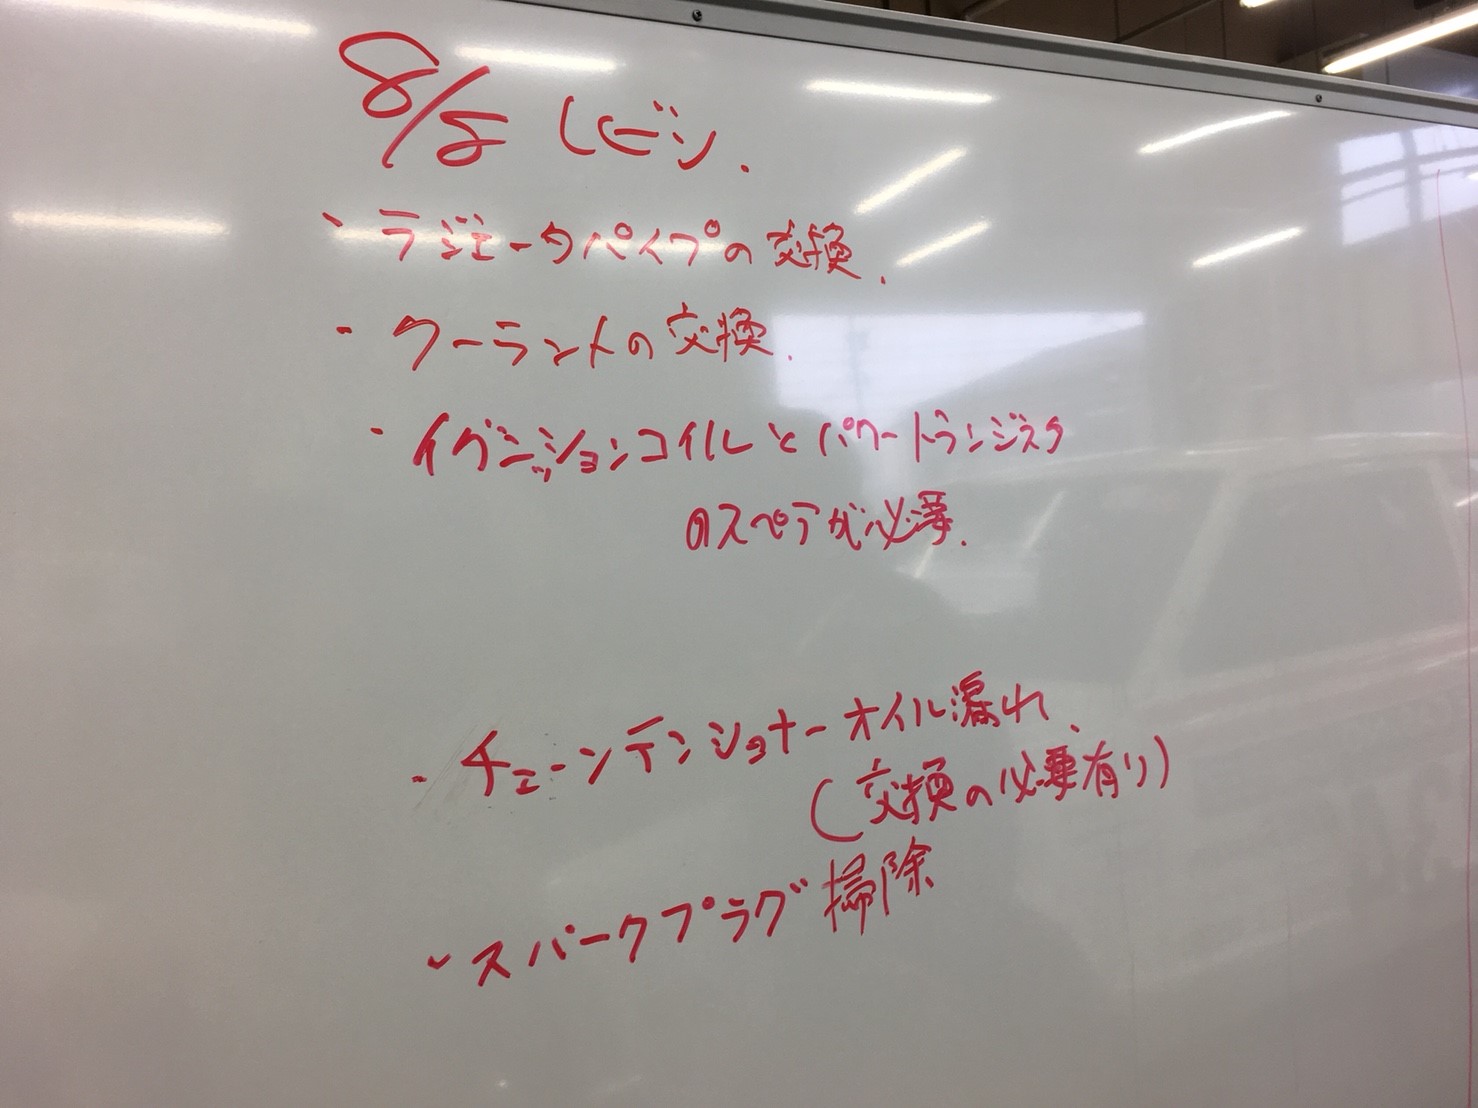 8/5 レビン.
・ラジエータパイプの交換.
・クーラントの交換.
・イグニッションコイルとパワートランジスタ
のスペアが必要.
・チェーンテンショナーオイル漏れ.
(交換の必要有り)
・スパークプラグ掃除